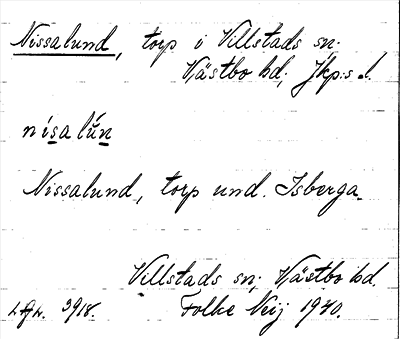 Nissalund, torp i Villstads sn.
Västbo hd; Jkp:s l.
nísalún
Nissalund, torp und. Isberga.
Villstads sn; Västbo hd.
3918. Folke Neij 1940.